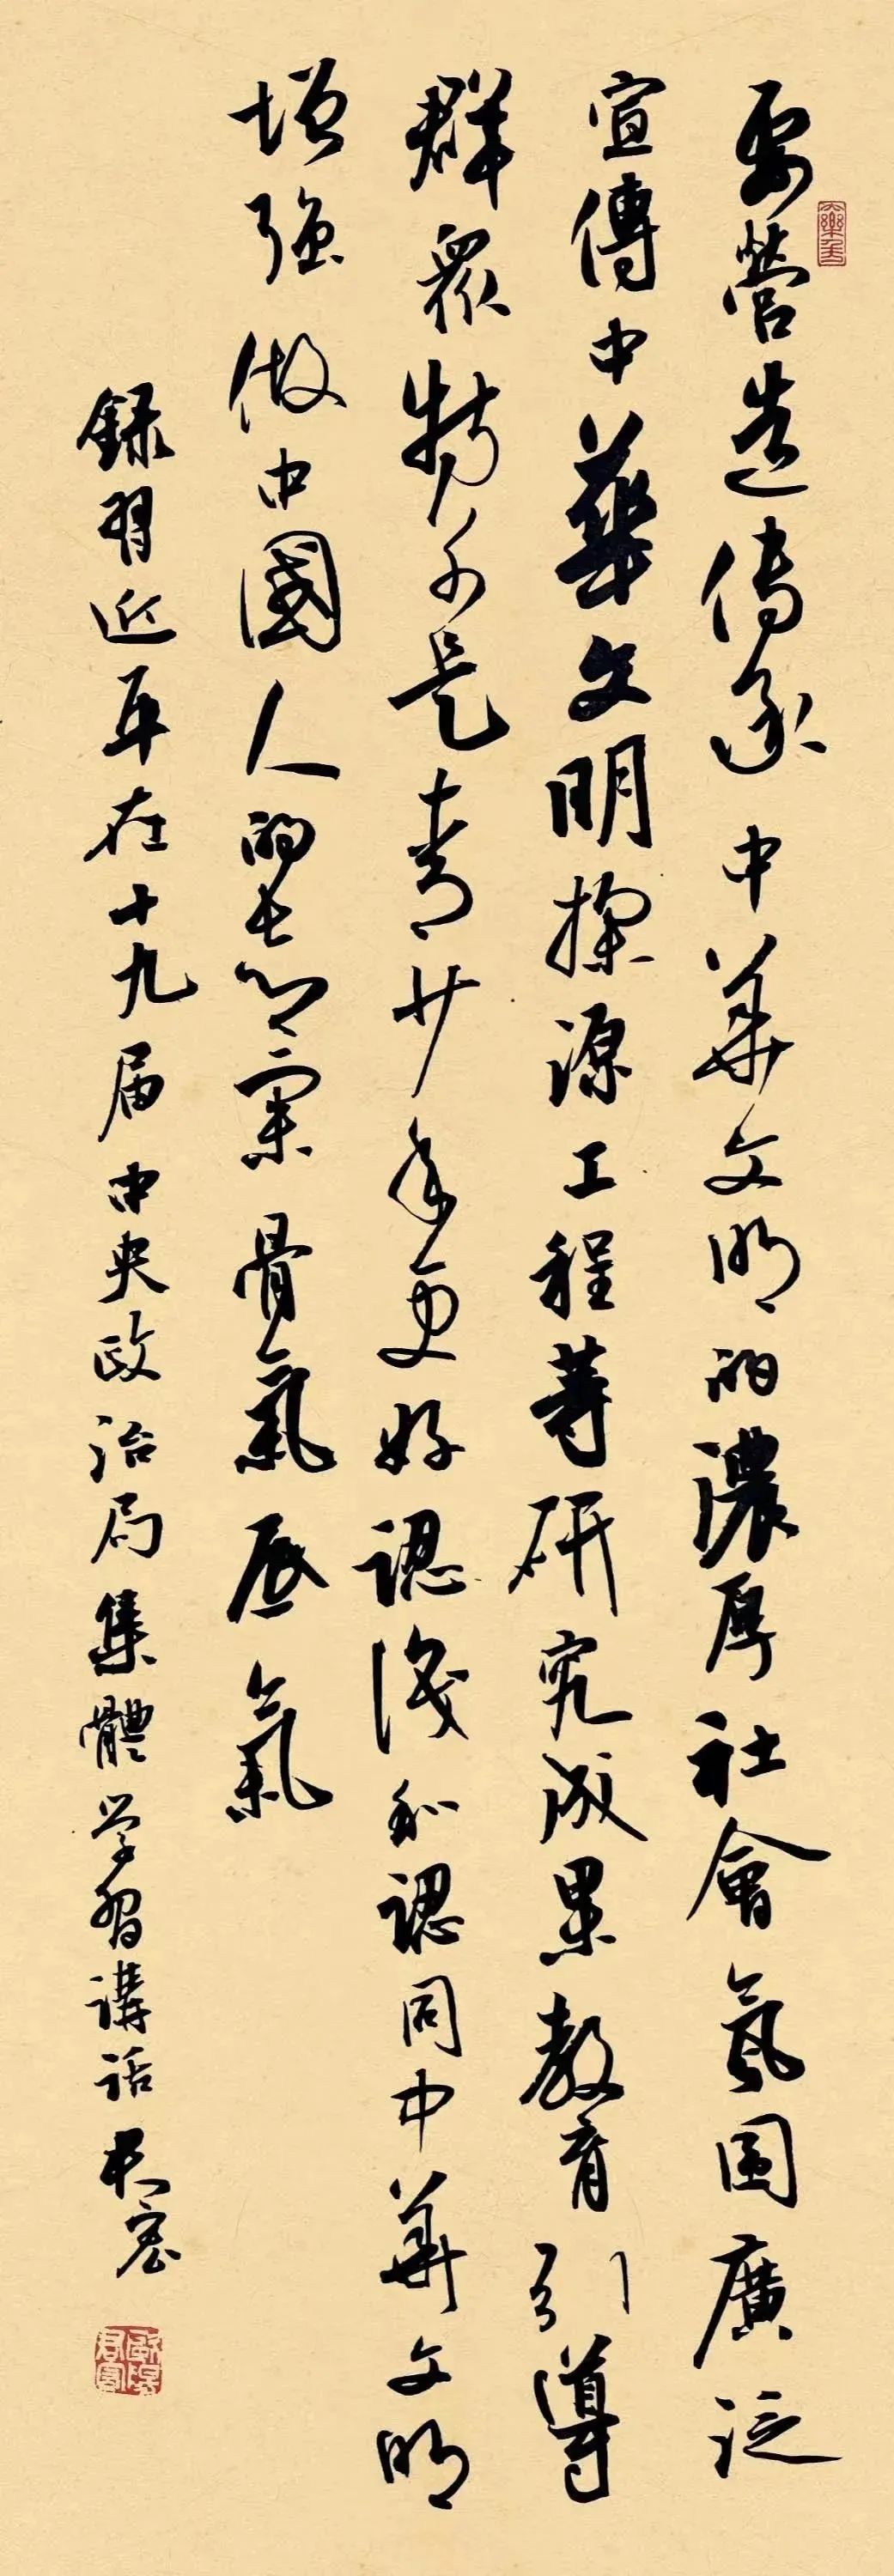 要營造傳承中華文明的濃厚社會氛围廣泛
宣傳中華文明探源工程等研究成果教育引導
群眾特别是青少年更好認識和認同中華文明
增强做中國人的志氣骨氣底氣
録習近平在十九届中央政治局集體学習講話